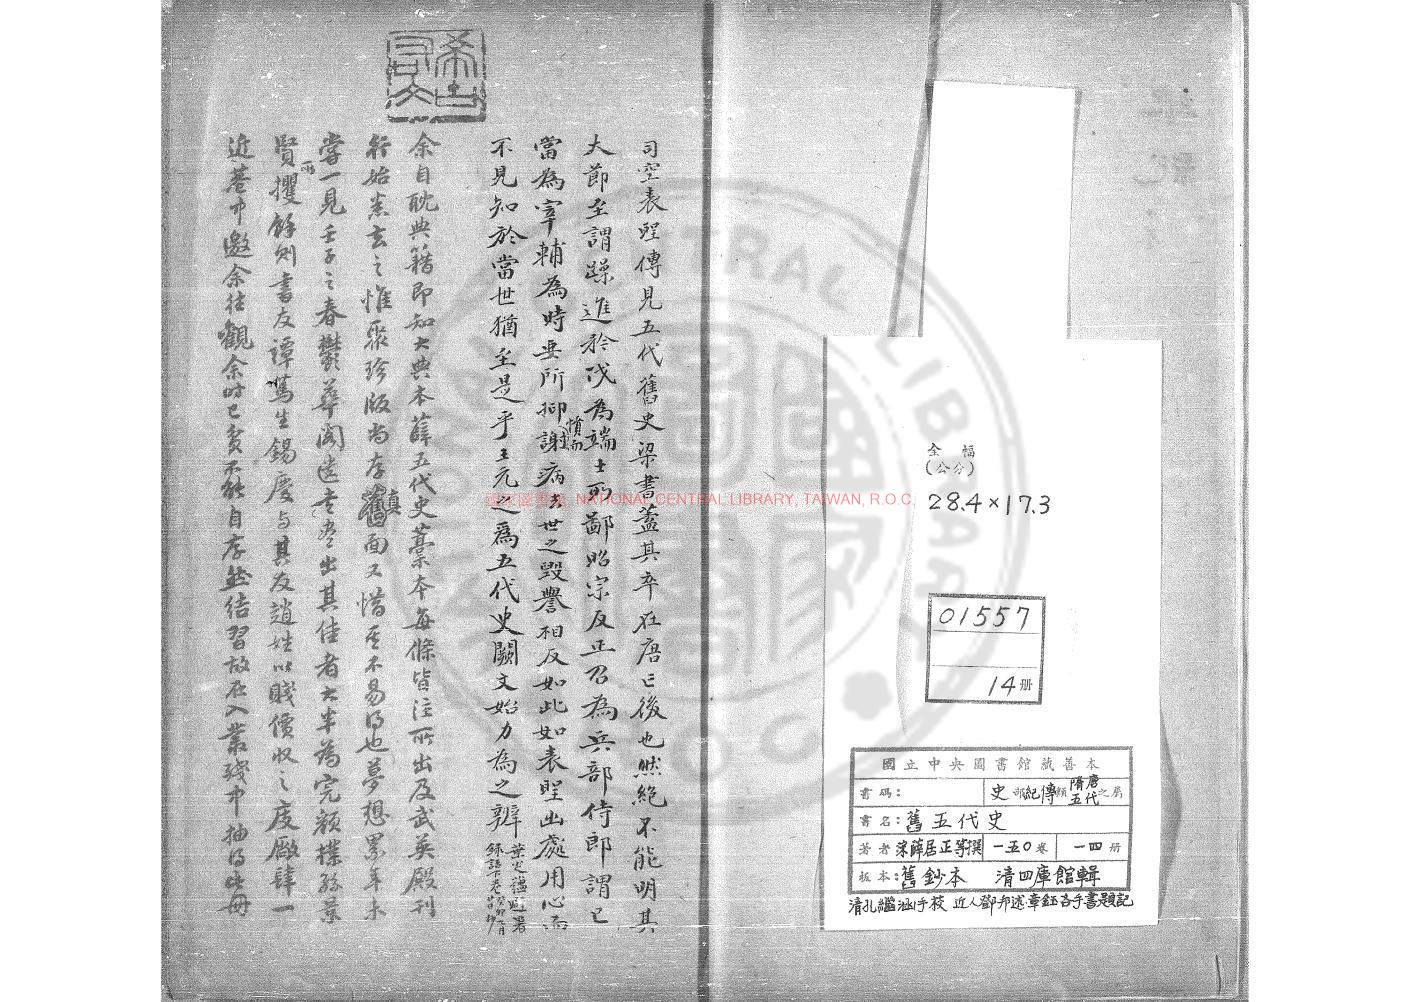 全幅
(公分)
28.4×17.3
01557
14册
國立中央圖書館藏善本
書碼: 史部紀傳類隋唐五代之屬
書名:舊五代史
著者:宋薛居正等撰 一五〇卷 一四册
板本:舊鈔本 清四庫館輯
清孔繼涵手校 近人鄧邦述章鈺各手書題記
司空表聖傳見五代舊史梁書蓋其卒在唐亡後也然絶不能明其
大節至謂躁進矜伐為端士所鄙昭宗反正召為兵部侍郎謂已
當為宰輔為時要所抑憤而謝病去世之毀譽相反如此如表聖出處用心而
不見知於當世猶至是乎王元之為五代史闕文始力為之辨
葉
錄
余自耽典籍即知大典本薛五代史藁本每條皆注所出及武英殿刊
行始悉去之惟聚珍版尚存真面又惜其不易得也夢想累年未
嘗一見壬子之春鬱華閣遺書盡出其佳者大半為完顏樸孫
賢所攫餘則書友譚篤生錫慶與其友趙姓以賤價收之度廠肆一
近巷中邀余往觀余時已貧不能自存然結習故在入叢殘中抽得此冊
希古
右文
國家圖書館 NATIONAL CENTRAL LIBRARY, TAIWAN, R.O.C.
NATIONAL CENTRAL LIBRARY
R.O.C.